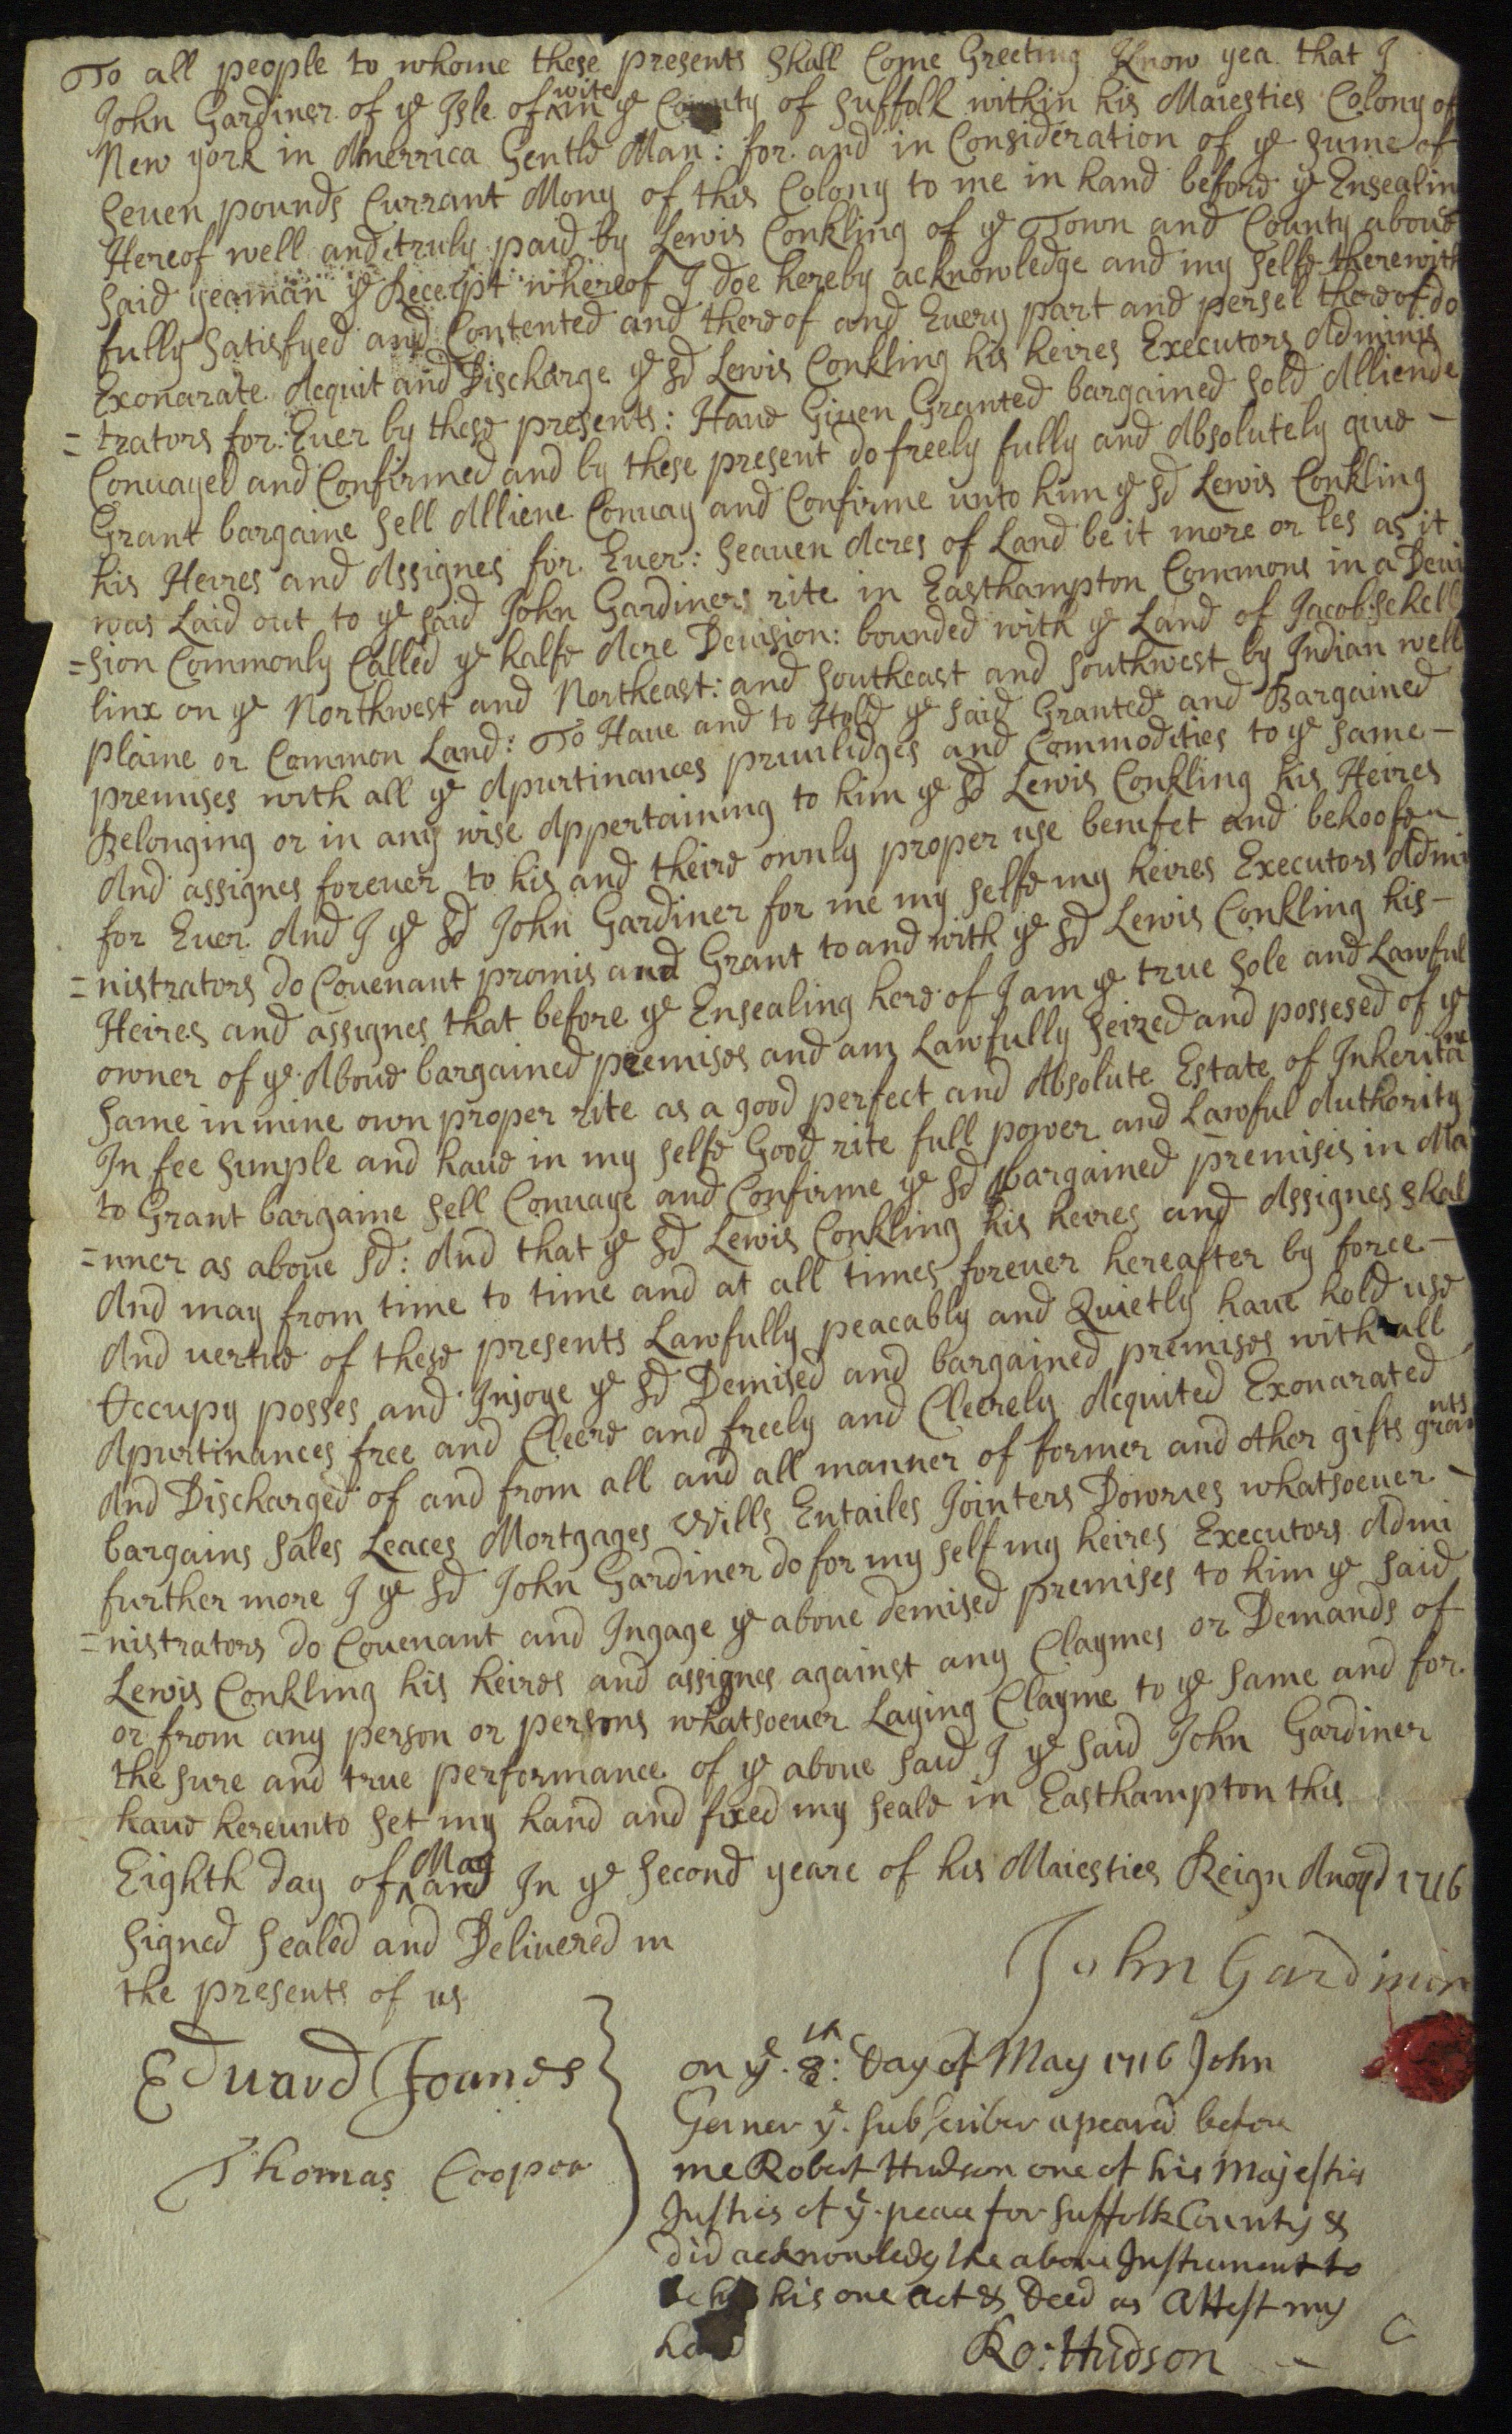 To all people to whome these presents Shall Come Greeting Know yea that I
John Gardiner of ye Isle of ^wite in ye County of Suffolk within his Maiesties Colony of
New york in Amerrica Gentle Man: for and in Consideration of ye sume of
Seuen pounds Currant Mony of this Colony to me in hand before ye Ensealin
Hereof well and truly paid by Lewis Conkling of ye Town and County aboue
said yeaman ye Receipt whereof I doe hereby acknowledge and my selfe therewith
fully Satisfyed and Contented and thereof and Euery part and persel thereof do
Exonarate Acquit and Discharge ye sd Lewis Conkling his heires Executors Adminis
=trators for Euer by these presents: Haue Giuen Granted bargained Sold Alliende
Conuayed and Confirmed and by these present do freely fully and Absolutely giue -
Grant bargaine Sell Alliene Conuay and Confirme unto him ye sd Lewis Conkling
his Heires and Assignes for Euer: Seauen Acres of Land be it more or les as it
was Laid out to ye said John Gardiners rite in Easthampton Commons in a Deui
=sion Commonly Called ye halfe Acre Deuision: bounded with ye Land of Jacob Schell
linx on ye Northwest and Northeast: and Southeast and Southwest by Indian well
plaine or Common Land: To Haue and to Hold ye said Granted and Bargained
premises with all ye Apurtinances priuilidges and Commodities to ye same -
Belonging or in any wise Appertaining to him ye sd Lewis Conkling his Heires
And assignes foreuer to his and theire ownly proper use benifet and behoofe
for Euer And I ye sd John Gardiner for me my selfe my heires Executors Admi
=nistrators do Couenant promis and Grant to and with ye sd Lewis Conkling his -
Heires and assignes that before ye Ensealing here of I am ye true Sole and Lawful
owner of ye Aboue bargained premises and am Lawfully Seized and possesed of ye
Same in mine own proper rite as a good perfect and Absolute Estate of Inheritance
In fee Simple and haue in my selfe Good rite full power and Lawful Authority
to Grant bargaine Sell Conuaye and Confirme ye sd bargained premises in Ma
=nner as aboue sd: And that ye sd Lewis Conkling his heires and Assignes shal
And may from time to time and at all times foreuer hereafter by force -
And uertue of these presents Lawfully peacably and Quietly haue hold use
Occupy posses and Injoye ye sd Demised and bargained premises with all
Apurtinances free and Cleere and freely and Cleerely Acquited Exonarated
And Discharged of and from all and all manner of former and other gifts grants
bargains Sales Leaces Mortgages Wills Entailes Jointers Dowries whatsoeuer -
further more I ye sd John Gardiner do for my self my heires Executors Admi
=nistrators do Couenant and Ingage ye aboue demised premises to him ye said
Lewis Conkling his heires and assignes against any Claymes or Demands of
or from any person or persons whatsoeuer Laying Clayme to ye same and for
the sure and true performance of ye aboue said I ye said John Gardiner
haue hereunto set my hand and fixed my seale in Easthampton this
Eighth day of ^May and In ye Second yeare of his Maiesties Reign Anoqd 1716
Signed Sealed and Deliuered in
the presents of us
John Gardiner
Eduard Joanes
Thomas Cooper
on ye. 8th: Day of May 1716 John
Gerner ye. subscriber apeared before
me Robert Hudson one of his Majestis
Justies of ye. peace for Suffolk County &
did acknowledg the aboue Instrument to
be his one act & Deed as Attest my
hand
Ro: Hudson